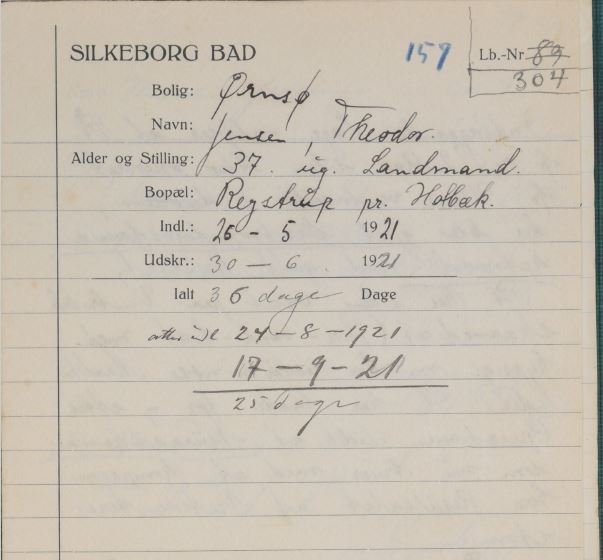 SILKEBORG BAD 157 Lb.-Nr 89
304
Bolig: Ørnsø
Navn: Jensen, Theodor.
Alder og Stilling: 37. ug. Landmand.
Bopæl: Regstrup pr. Holbæk.
Indl.: 26 - 5 1921
Udskr.: 30 - 6 1921
Ialt 36 dage Dage
atter idl 24 - 8 - 1921
17 - 9 - 21
25 dage